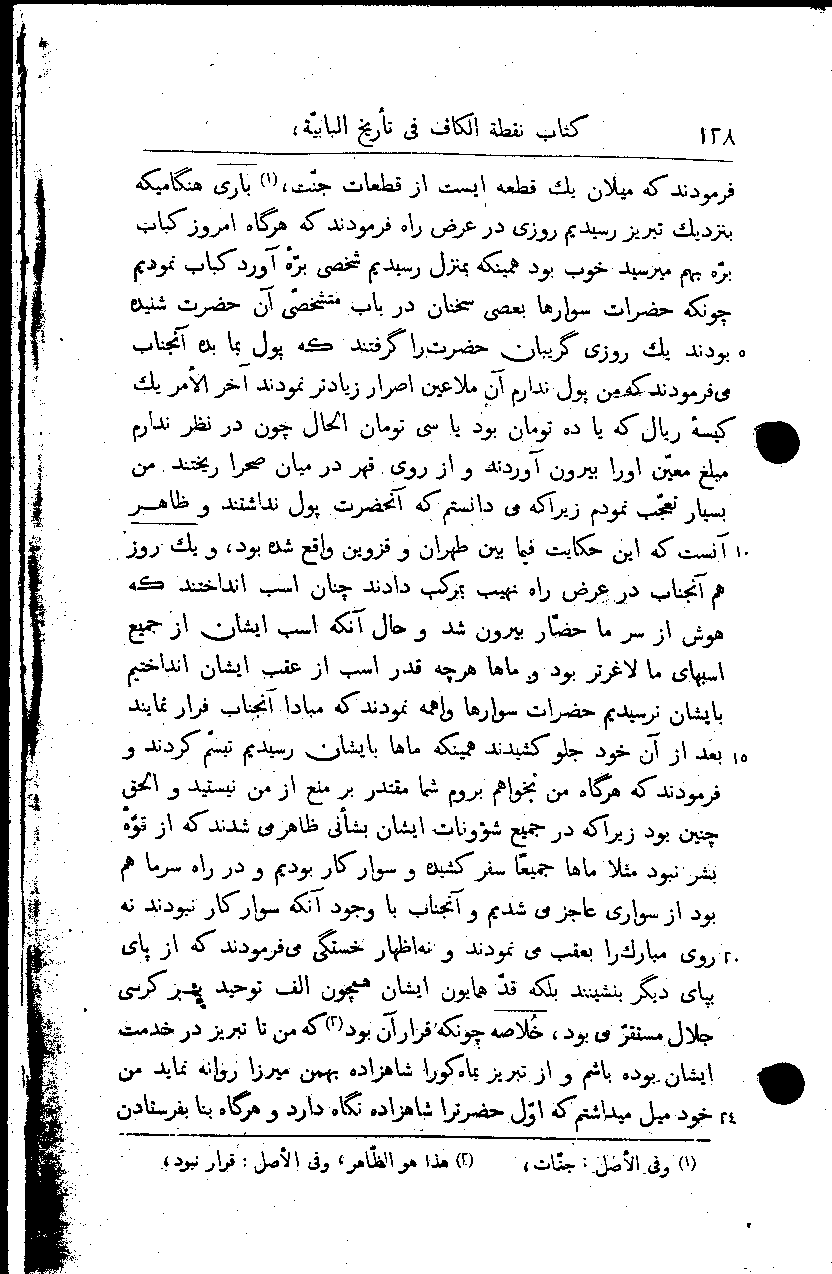 ١٢٨ کتاب نقطة الکاف فی تأریخ البابیّة،
فرمودند که میلان یك قطعه ایست از قطعات جنّت،(١) باری هنگامیکه
بنزدیك تبریز رسیدیم روزی در عرض راه فرمودند که هرگاه امروز کباب
برّه بهم میرسید خوب بود همینکه بمنزل رسیدیم شخصی برّهٔ آورد کباب نمودیم
چونکه حضرات سوارها بعصی سخنان در باب متشخّصی آن حضرت شنیده
٥ بودند یك روزی گریبان حضرت‌را گرفتند که پول بما بده آنجناب
می‌فرمودند که من پول ندارم آن ملاعین اصرار زیادتر نمودند آخر الأمر یك
کیسهٔ ریال که یا ده تومان بود یا سی تومان الحال چون در نظر ندارم
مبلغ معیّن اورا بیرون آوردند و از روی قهر در میان صحرا ریختند من
بسیار تعجّب نمودم زیراکه می دانستم که آنحضرت پول نداشتند و ظاهر
١٠ آنست که این حکایت فیما بین طهران و قزوین واقع شده بود، و یك روز
هم آنجناب در عرض راه نهیب بمرکب دادند چنان اسب انداختند که
هوش از سر ما حضّار بیرون شد و حال آنکه اسب ایشان از جمیع
اسبهای ما لاغرتر بود و ماها هرچه قدر اسب از عقب ایشان انداختیم
بایشان نرسیدیم حضرات سوارها واهمه نمودند که مبادا آنجناب فرار نمایند
١٥ بعد از آن خود جلو کشیدند همینکه ماها بایشان رسیدیم تبسّم کردند و
فرمودند که هرگاه من بخواهم بروم شما مقتدر بر منع از من نیستید و الحق
چنین بود زیراکه در جمیع شؤونات ایشان بشأنی ظاهر می شدند که از قوّهٔ
بشر نبود مثلا ماها جمیعًا سفر کشیده و سوار کار بودیم و در راه سرما هم
بود از سواری عاجز می شدیم و آنجناب با وجود آنکه سوار کار نبودند نه
٢٠ روی مبارك‌را بعقب می نمودند و نه‌اظهار خستگی می‌فرمودند که از پای
بپای دیگر بنشینند بلکه قدّ همایون ایشان همچون الف توحید بر کرسی
جلال مستقرّ می بود، خلاصه چونکه قرار آن بود(٢) که من تا تبریز در خدمت
ایشان بوده باشم و از تبریز بماه‌کورا شاهزاده بهمن میرزا روانه نماید من
٢٤ خود میل میداشتم که اوّل حضرترا شاهزاده نگاه دارد و هرگاه بنا بفرستادن
(١) وفی الأصل : جنّات، (٢) هذا هو الظّاهر، وفی الأصل : قرار نبود،